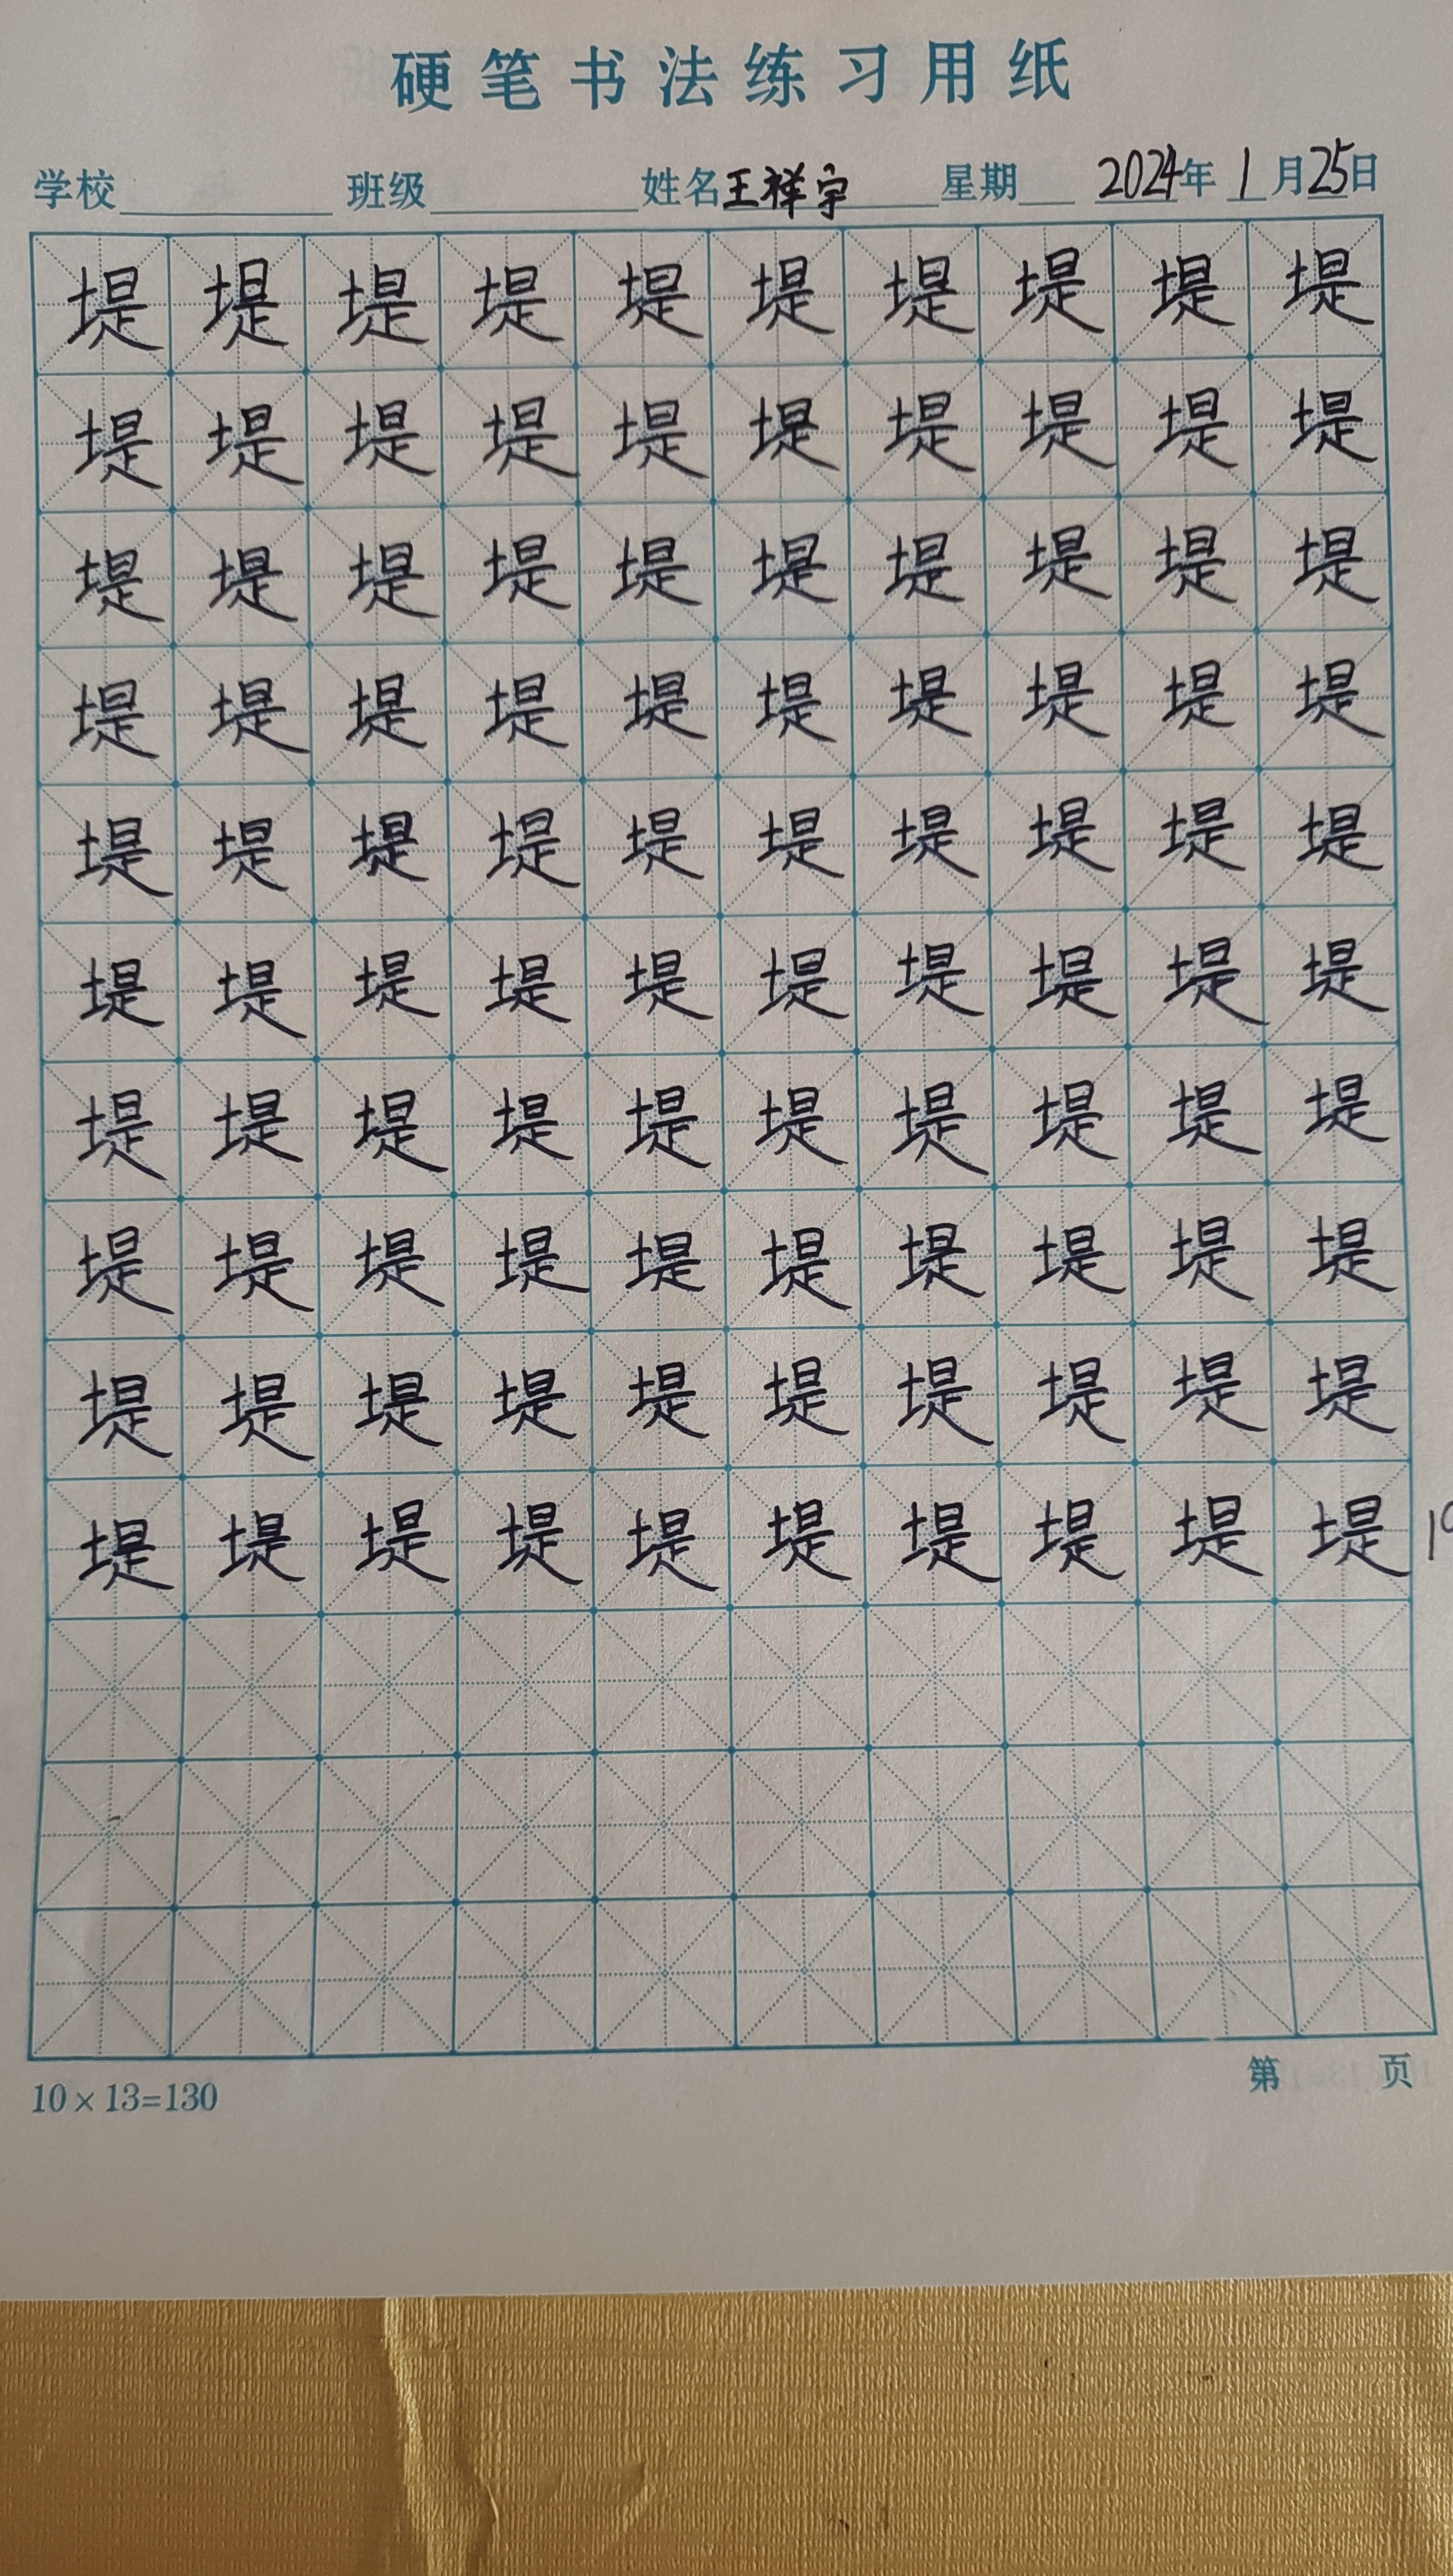 硬笔书法练习用纸
学校 班级 姓名王祥宇 星期 2024年1月25日
堤堤堤堤堤堤堤堤堤堤
堤堤堤堤堤堤堤堤堤堤
堤堤堤堤堤堤堤堤堤堤
堤堤堤堤堤堤堤堤堤堤
堤堤堤堤堤堤堤堤堤堤
堤堤堤堤堤堤堤堤堤堤
堤堤堤堤堤堤堤堤堤堤
堤堤堤堤堤堤堤堤堤堤
堤堤堤堤堤堤堤堤堤堤
堤堤堤堤堤堤堤堤堤堤
10×13=130 第 页